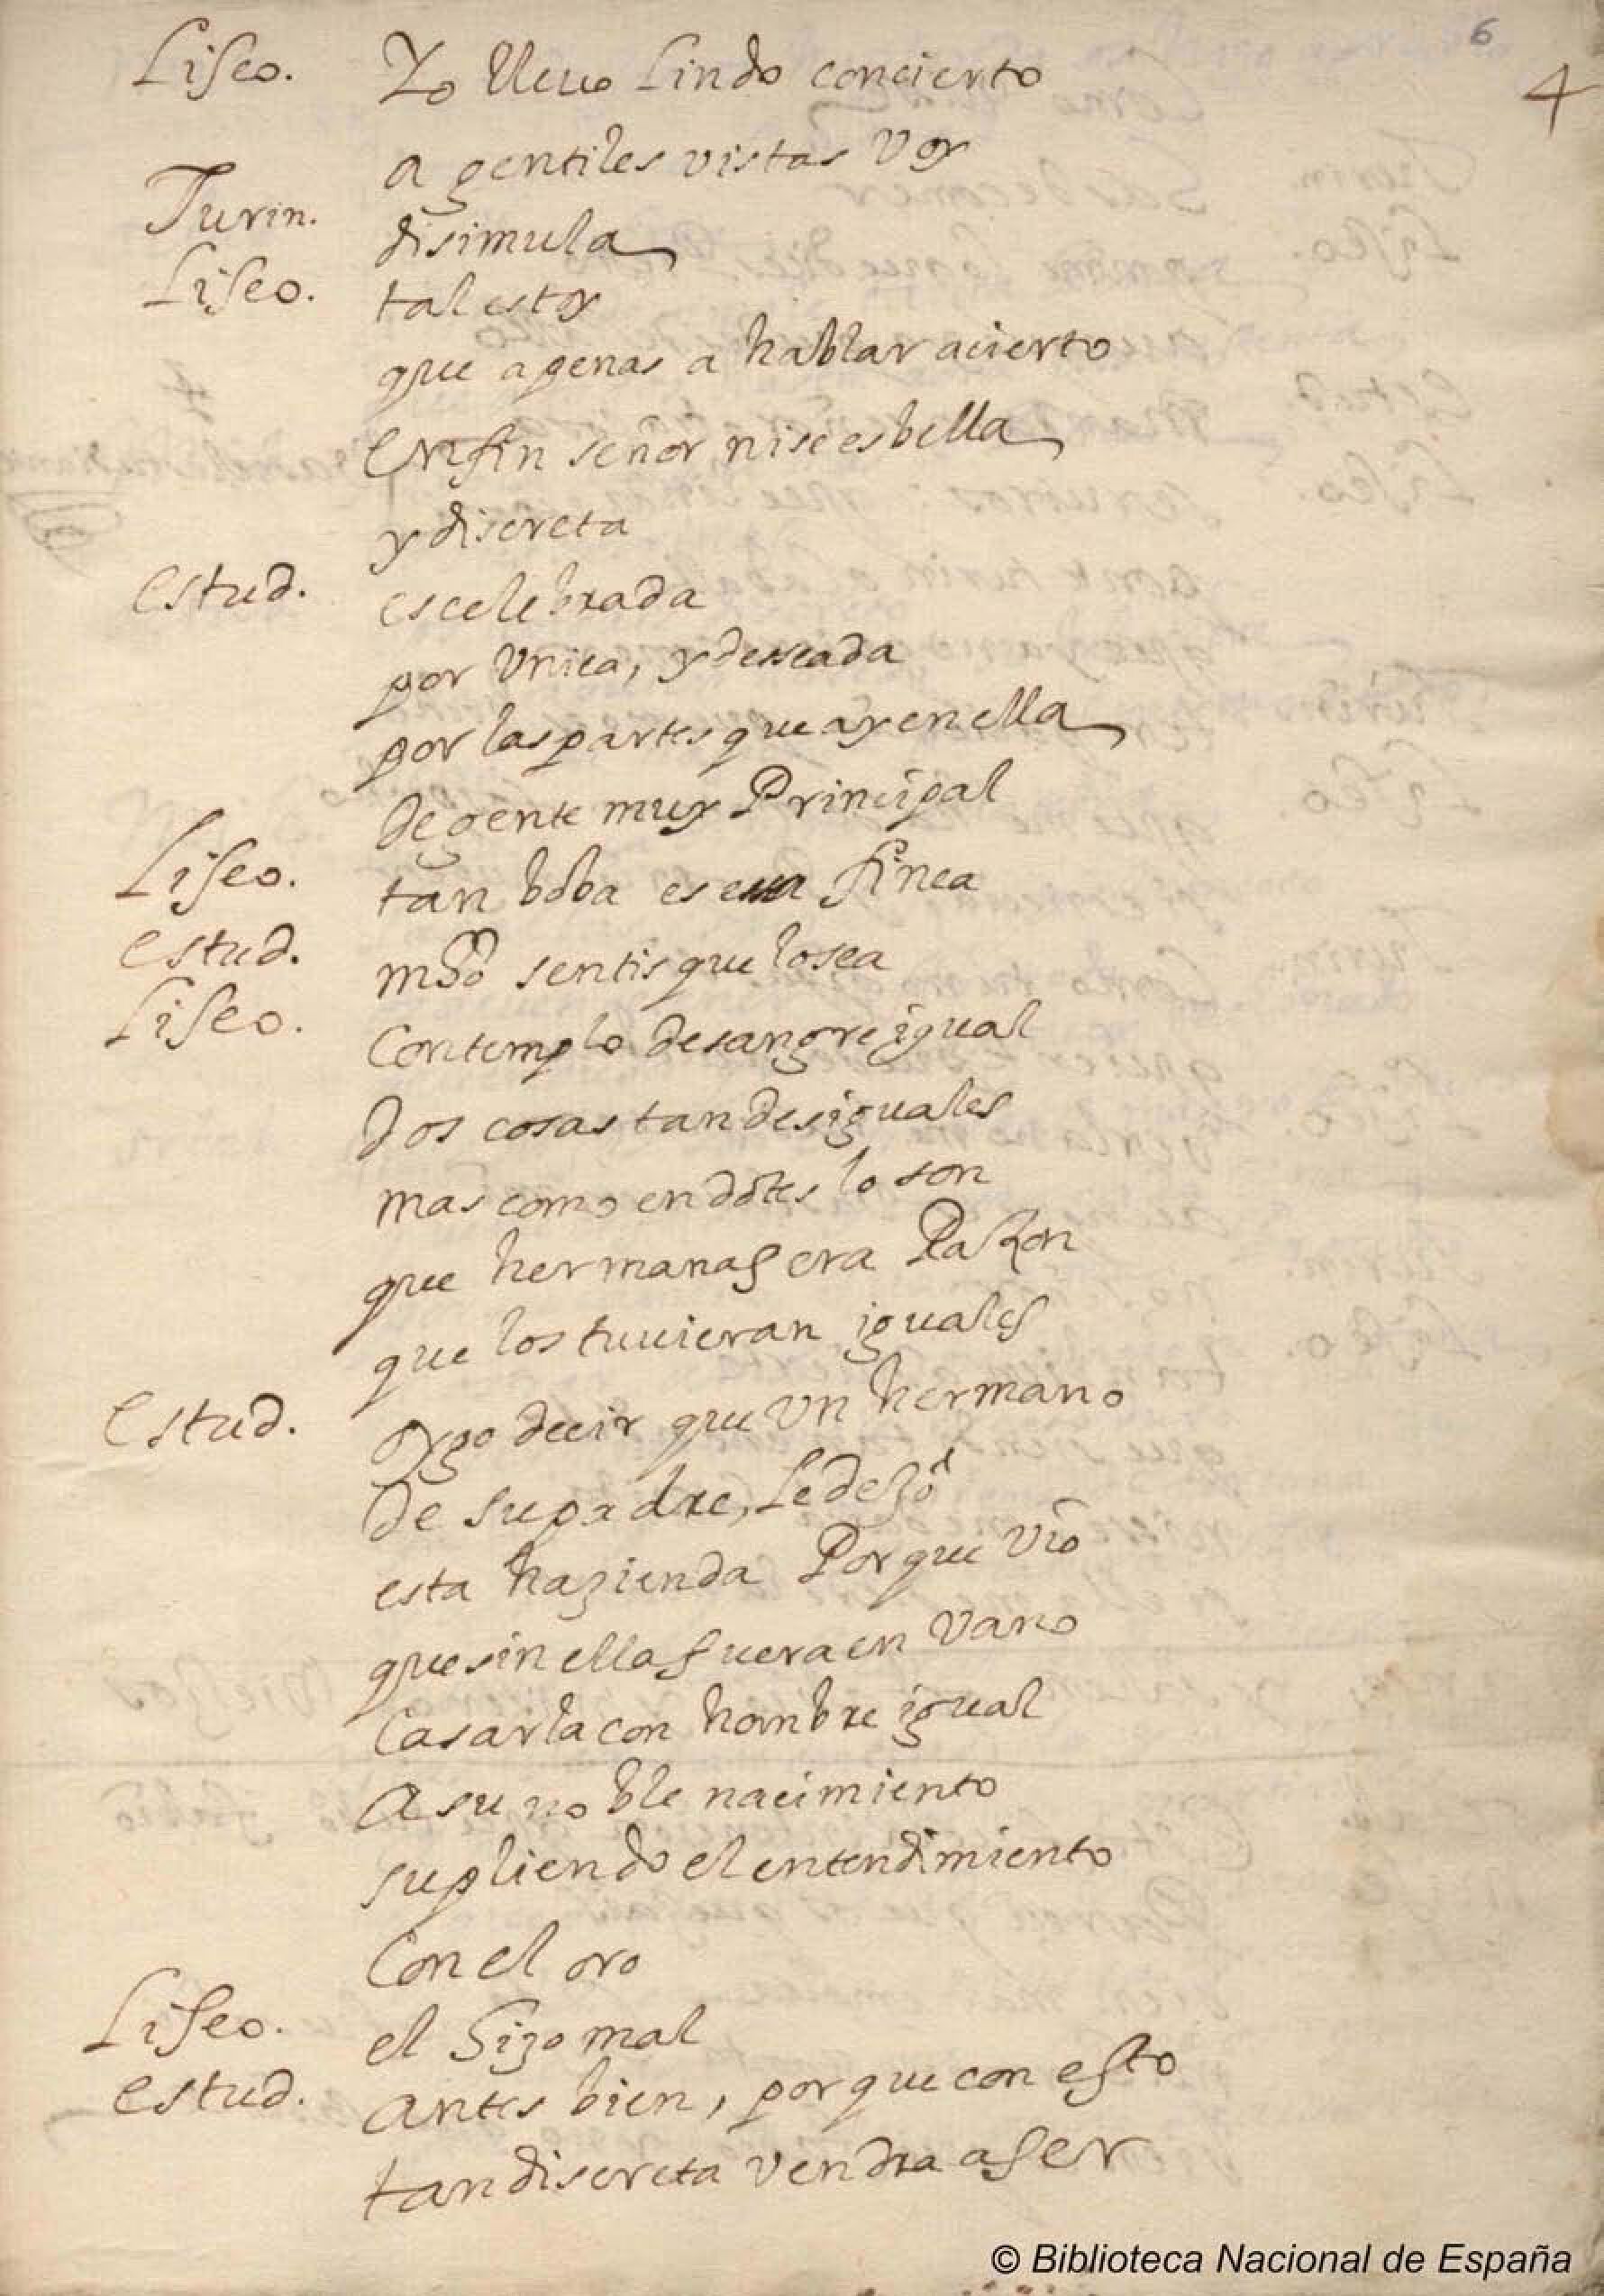 6
4
Liseo. Yo lleuo Lindo concierto
a gentiles vistas voy
Turin. disimula
Liseo. tal estoy
que apenas a hablar acierto
En fin señor nise es bella
y discreta
estud. es celebrada
por Vnica, y desseada
por las partes que ay en ella
de gente muy Principal
Liseo. tan boba es esa finea
estud. mucho sentis que lo sea
Liseo. Contemplo de sangre igual
dos cosas tan desiguales
mas como en dotes lo son
que hermanas era Razon
que los tuuieran iguales
estud. oygo decir que Vn hermano
de su padre, Le dexó
esta hazienda Porque Vio
que sin ella fuera en Vano
Casarla con hombre igual
A su noble nacimiento
supliendo el entendimiento
Con el oro
Liseo. el hizo mal
estud. antes bien, porque con esto
tan discreta vendra a ser
© Biblioteca Nacional de España